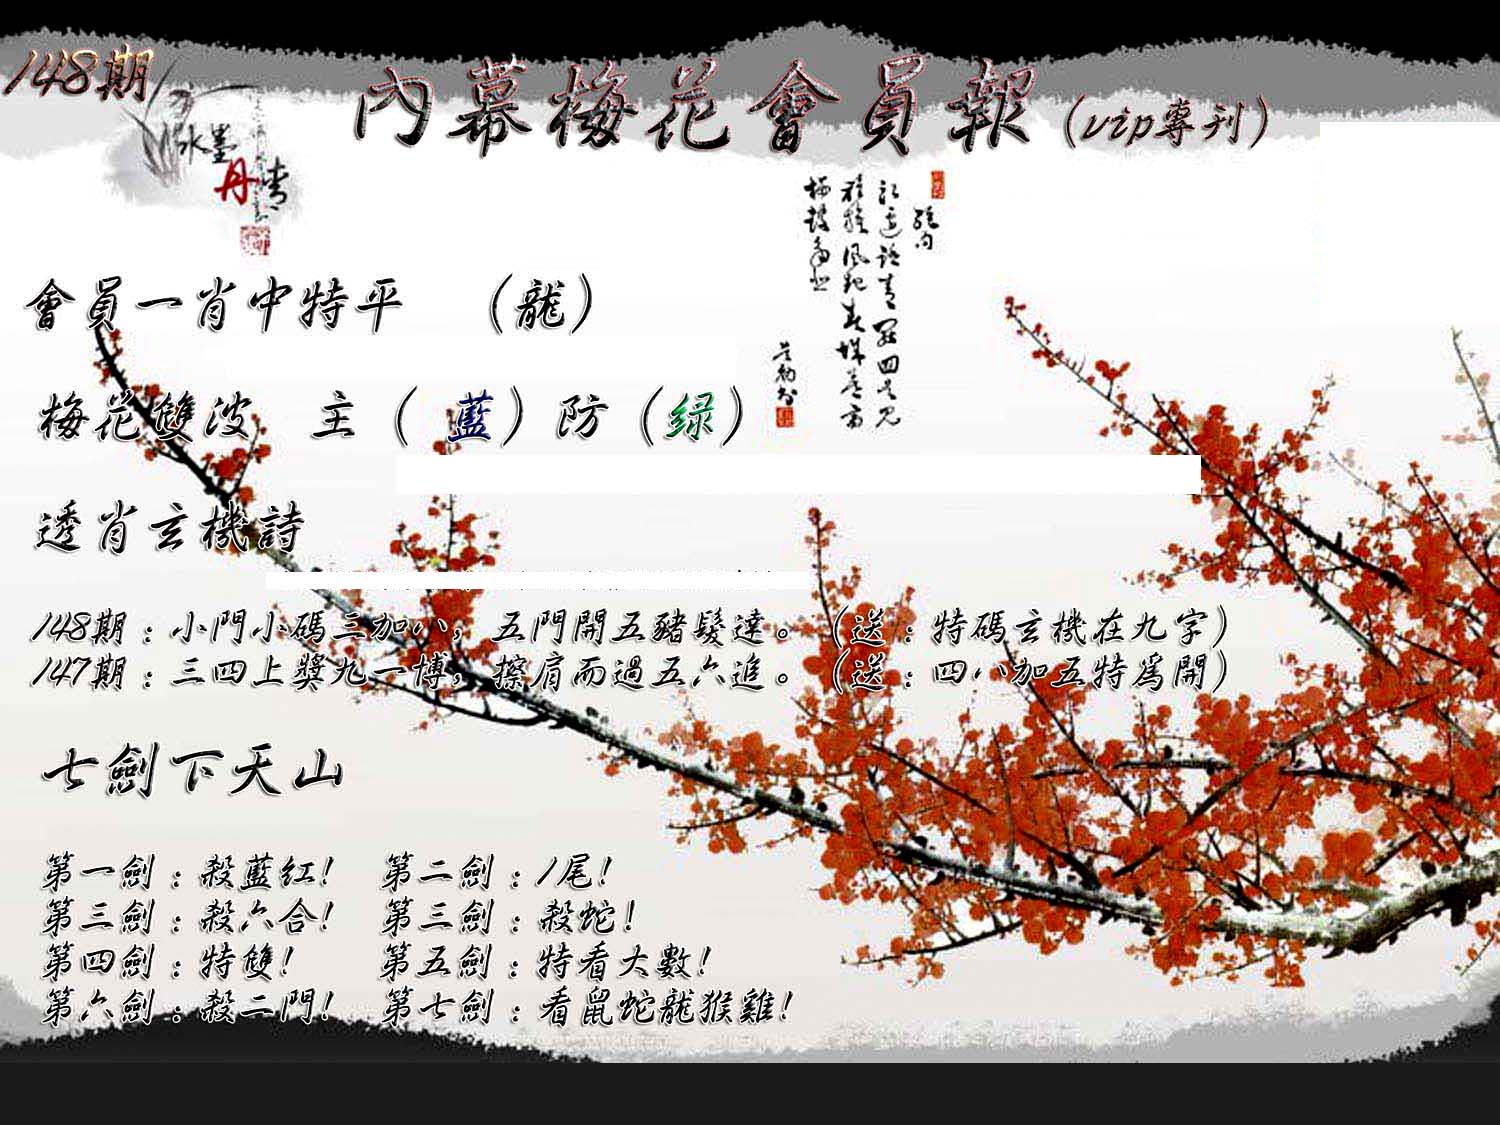 148期
內幕梅花會員報(vip專刊)
水墨
丹青
絕句
會員一肖中特平 (龍)
梅花雙波 主(藍)防(绿)
透肖玄機詩
148期:小門小碼三加八,五門開五豬髮達。(送:特碼玄機在九字)
147期:三四上獎九一博,擦肩而過五六追。(送:四八加五特爲開)
七劍下天山
第一劍:殺藍红! 第二劍:1尾!
第三劍:殺六合! 第三劍:殺蛇!
第四劍:特雙! 第五劍:特看大數!
第六劍:殺二門! 第七劍:看鼠蛇龍猴雞!